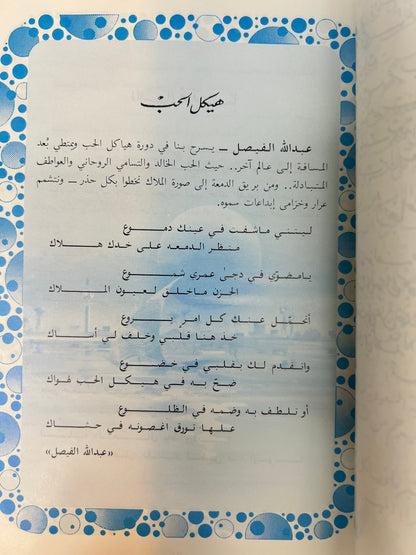 هيكل الحب
عبدالله الفيصل ــ يسرح بنا في دورة هياكل الحب ويمتطي بُعد
المسافة إلى عالم آخر.. حيث الحب الخالد والتسامي الروحاني والعواطف
المتبادلة.. ومن بريق الدمعة إلى صورة الملاك نخطوا بكل حذر ــ ونتشمم
عرار وخزامى إبداعات سموه.
ليتني ماشفت في عينك دموع
منظر الدمعه على خدك هلاك
يامضوّي في دجى عمري شموع
الحزن ماخلق لعيون الملاك
أتحمّل عنك كل امرٍ يروع
خذ هنا قلبي وخلف لي أساك
وانقدم لك بقلبي في خضوع
ضحّ به في هيكل الحب لهواك
أو تلطف به وضمه في الظلوع
علها تورق اغصونه في حشاك
«عبدالله الفيصل»